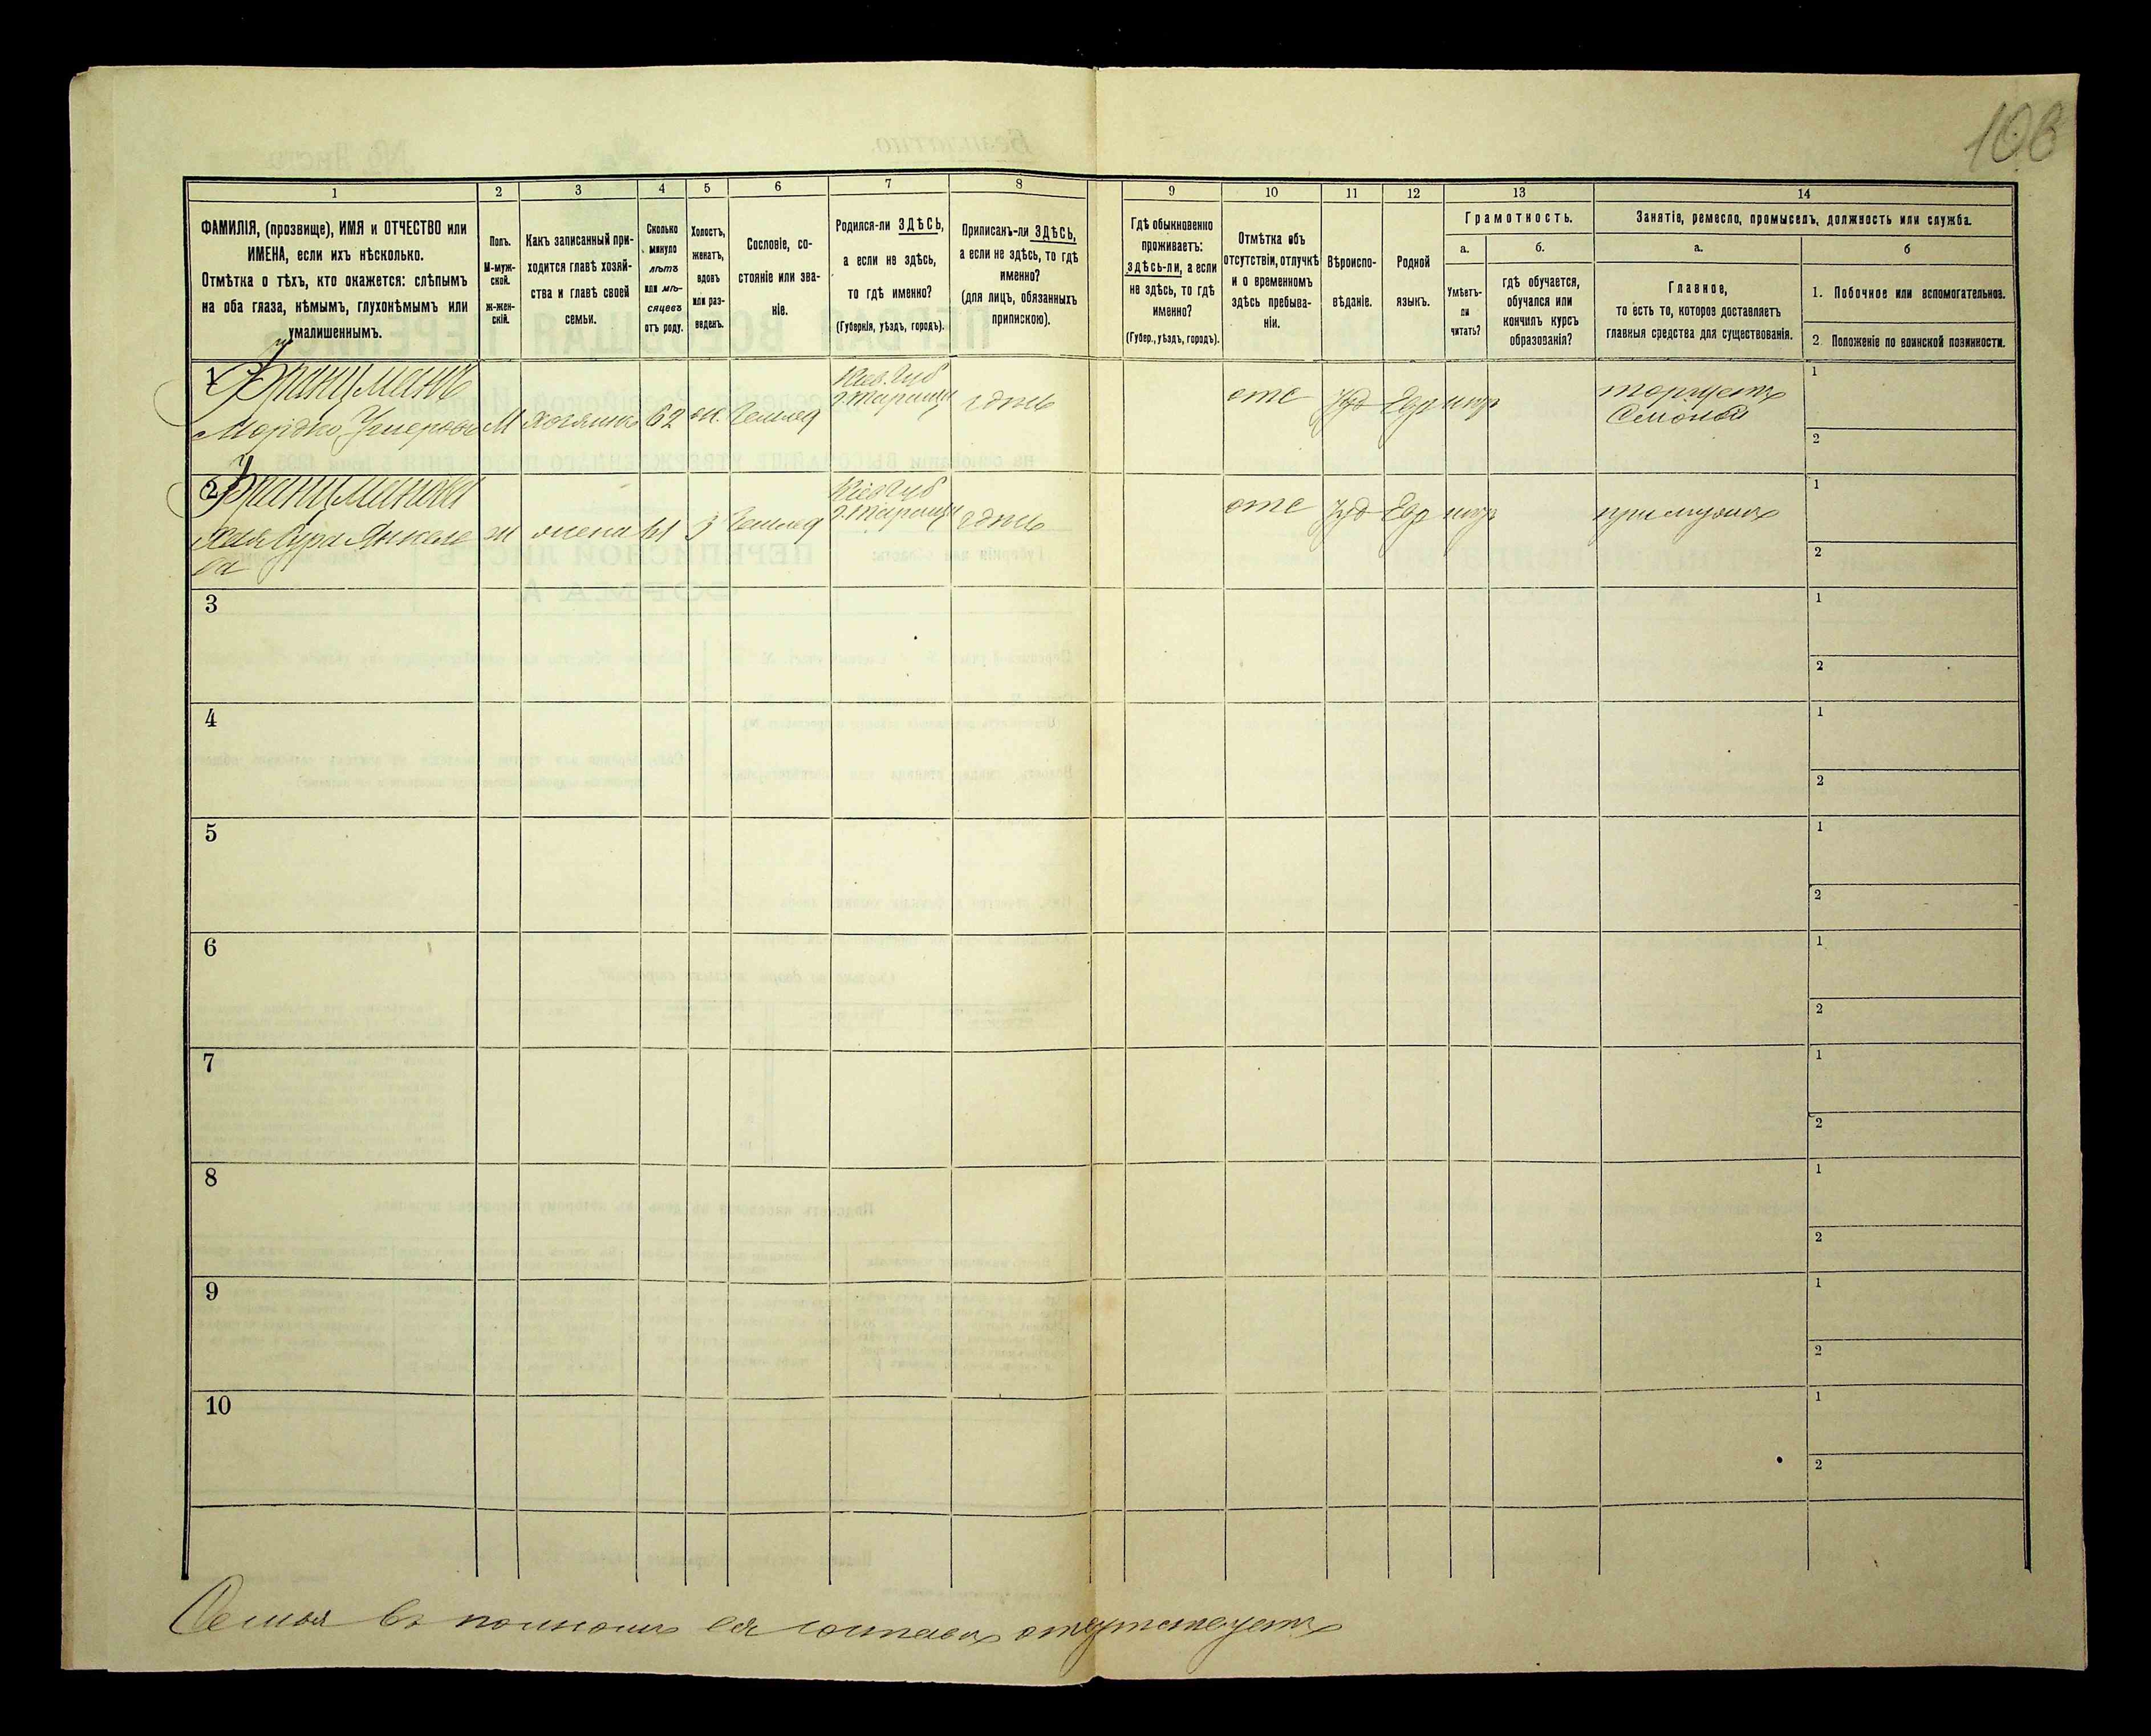 108
1 2 3 4 5 6 7 8 9 10 11 12 13 14
ФАМИЛІЯ, (прозвище), ИМЯ и ОТЧЕСТВО или
ИМЕНА, если ихъ нѣсколько.
Отмѣтка о тѣхъ, кто окажется: слѣпымъ
на оба глаза, нѣмымъ, глухонѣмымъ или
умалишеннымъ.
Полъ.
М-муж-
ской.
ж-жен-
скій.
Какъ записанный при-
ходится главѣ хозяй-
ства и главѣ своей
семьи.
Сколько
минуло
лѣтъ
или мѣ-
сяцевъ
отъ роду.
Холостъ,
женатъ,
вдовъ
или раз-
веденъ.
Сословіе, со-
стояніе или зва-
ніе.
Родился-ли ЗДѢСЬ,
а если не здѣсь,
то гдѣ именно?
(Губернія, уѣздъ, городъ).
Приписанъ-ли ЗДѢСЬ,
а если не здѣсь, то гдѣ
именно?
(для лицъ, обязанныхъ
припискою).
Гдѣ обыкновенно
проживаетъ:
здѣсь-ли, а если
не здѣсь, то гдѣ
именно?
(Губер., уѣздъ, городъ).
Отмѣтка объ
отсутствіи, отлучкѣ
и о временномъ
здѣсь пребыва-
ніи.
Вѣроиспо-
вѣданіе.
Родной
языкъ.
Грамотность.
а.
Умѣетъ-
ли
читать?
б.
гдѣ обучается,
обучался или
кончилъ курсъ
образованія?
Занятіе, ремесло, промыселъ, должность или служба.
а.
Главное,
то есть то, которое доставляетъ
главныя средства для существованія.
б
1. Побочное или вспомогательное.
2. Положеніе по воинской повинности.
1
Мордко
М
хозяинъ
62
Кіев. губ
г. Тараща
здѣсь
отс
Іуд
Евр
торгуетъ
1
2
2
Хая Сура Янкеле
ва
ж
жена
61
Кіев губ
г. Тараща
здѣсь
отс
Іуд
Евр
при мужѣ
1
2
3
1
2
4
1
2
5
1
2
6
1
2
7
1
2
8
1
2
9
1
2
10
1
2
Семья въ полномъ ея составѣ отсутствуетъ